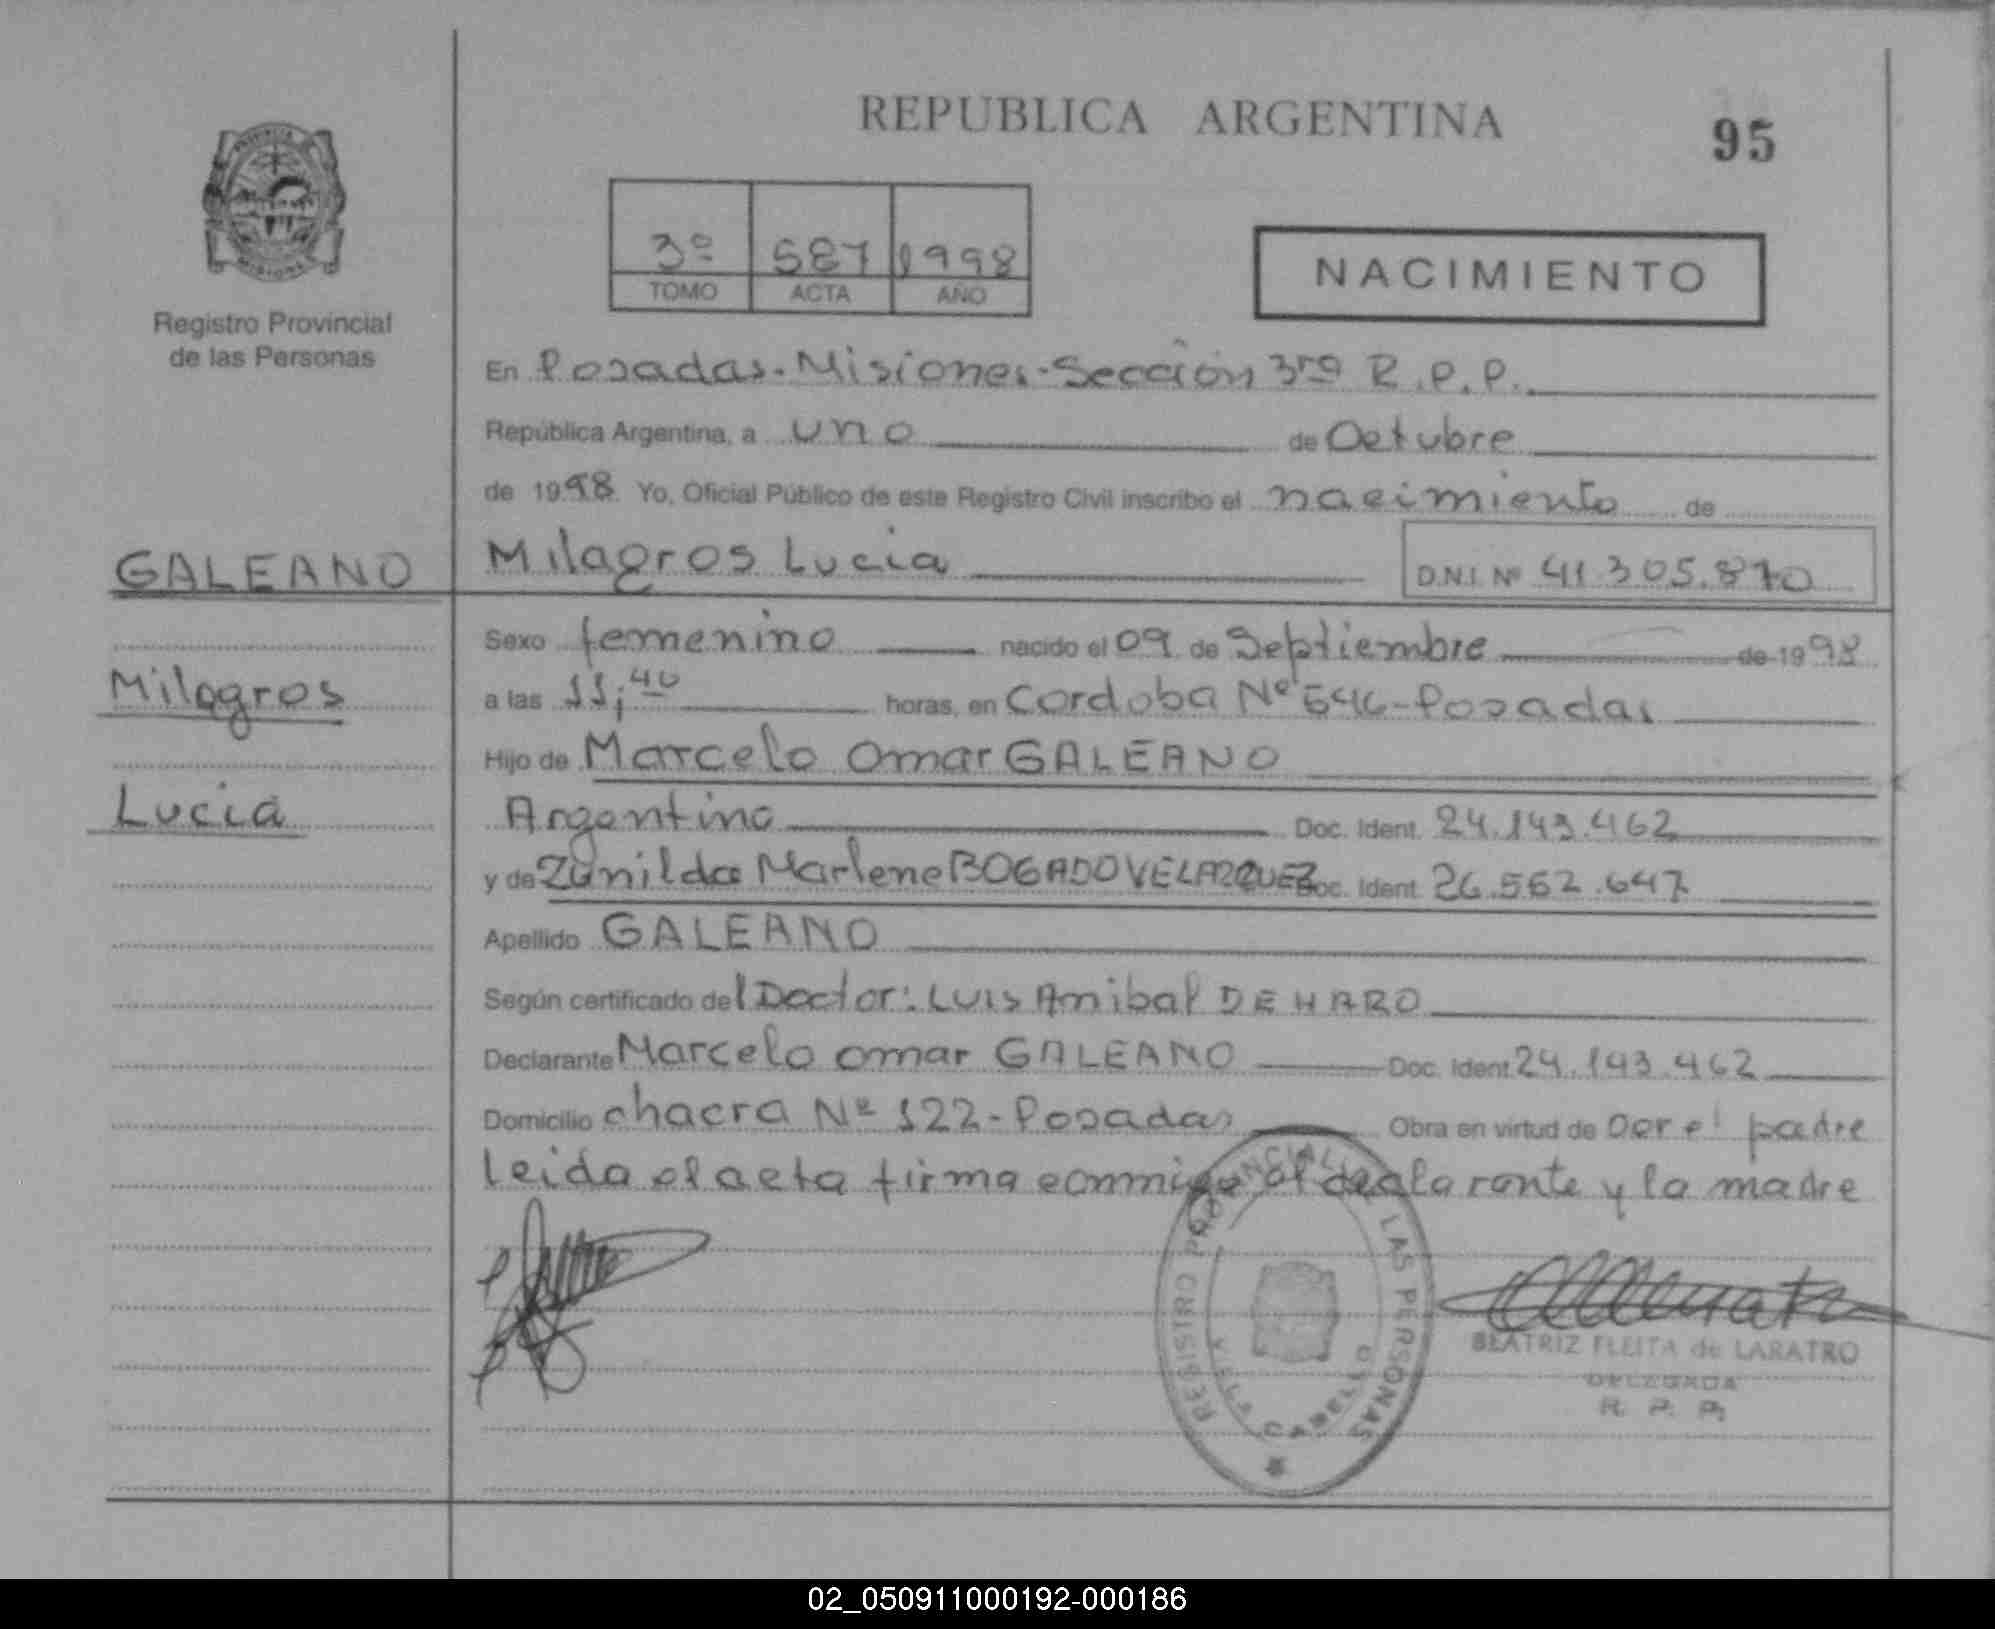 REPUBLICA ARGENTINA
95
PROVINCIA
MISIONES
Registro Provincial
de las Personas
3º 587 1998
TOMO ACTA AÑO
NACIMIENTO
En Posadas-Misiones-Sección 3ra R.P.P.
República Argentina, a uno de Octubre
de 1998 Yo, Oficial Público de este Registro Civil inscribo el nacimiento de
GALEANO
Milagros
Lucia
Milagros Lucia
D.N.I. Nº 41.305.870
Sexo femenino nacido el 09 de Septiembre de 1998
a las 11;40 horas, en Cordoba Nº 646-Posadas
Hijo de Marcelo Omar GALEANO
Argentino Doc. Ident. 24.143.462
y de Zunilda Marlene BOGADO VELAZQUEZ Doc. Ident. 26.562.647
Apellido GALEANO
Según certificado del Doctor: Luis Anibal DE HARO
Declarante Marcelo omar GALEANO Doc. Ident. 24.143.462
Domicilio chacra Nº 122-Posadas Obra en virtud de ser el padre
Leida el acta firma conmigo el declarante y la madre
REGISTRO PROVINCIAL DE LAS PERSONAS
VILLA CABELLO
BEATRIZ FLEITA de LARATRO
DELEGADA
R. P. P.
02_050911000192-000186